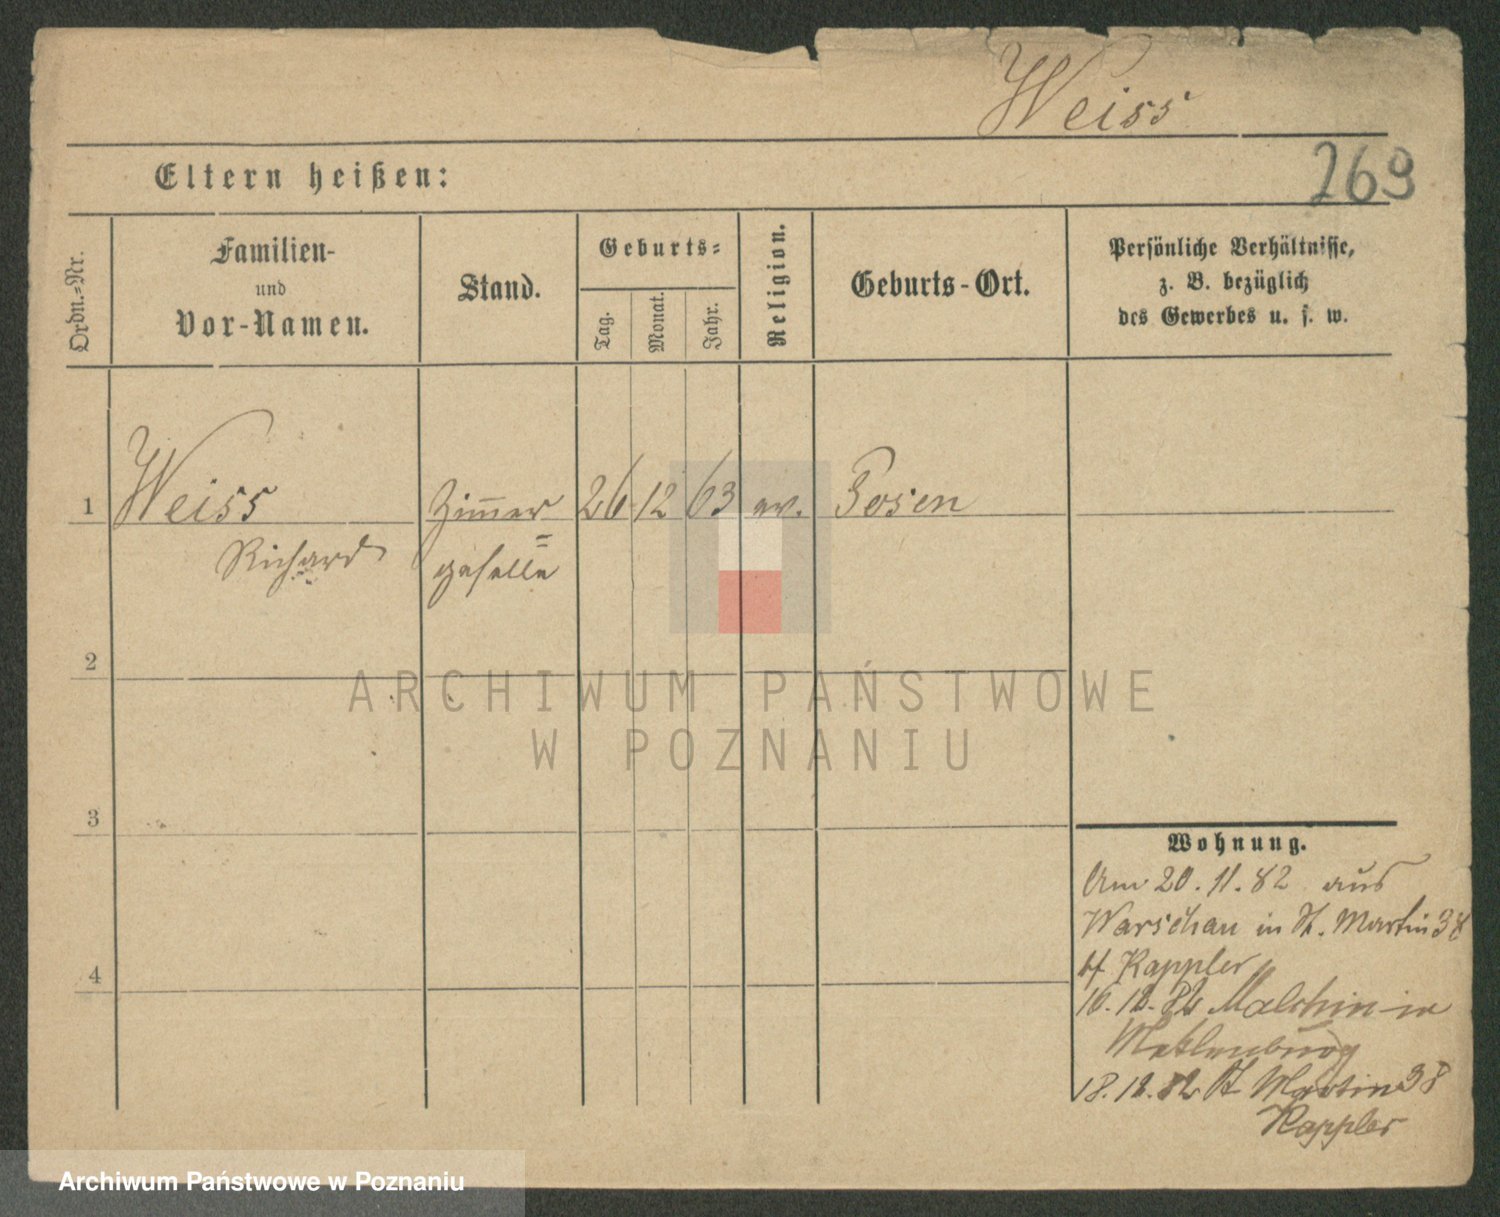 Weiss
269
Eltern heißen:
Ordn.-Nr.
Familien-
und
Vor-Namen.
Stand.
Geburts-
Tag.
Monat.
Jahr.
Religion.
Geburts-Ort.
Persönliche Verhältnisse,
z. B. bezüglich
des Gewerbes u. s. w.
1 Weiss Zimmer= 26 12 63 ev. Posen
Richard geselle
2
ARCHIWUM PAŃSTWOWE
W POZNANIU
3
Wohnung.
Am 20.11.82 aus
Warschau in St. Martin 38
Kappler
16.12.82 Malchin in
Meklenburg
18.12.82 St Martin 38
Kappler
4
Archiwum Państwowe w Poznaniu